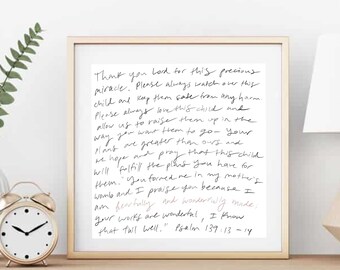 Thank you Lord for this precious
miracle. Please always watch over this
child and keep them safe from any harm
Please always love this child and
allow us to raise them up in the
way you want them to go. Your
plans are greater than ours and
we hope and pray that this child
will fulfill the plans you have for
them. "You formed me in my mother's
womb and I praise you because I
am fearfully and wonderfully made.
your works are wonderful, I know
that full well." Psalm 139:13-14